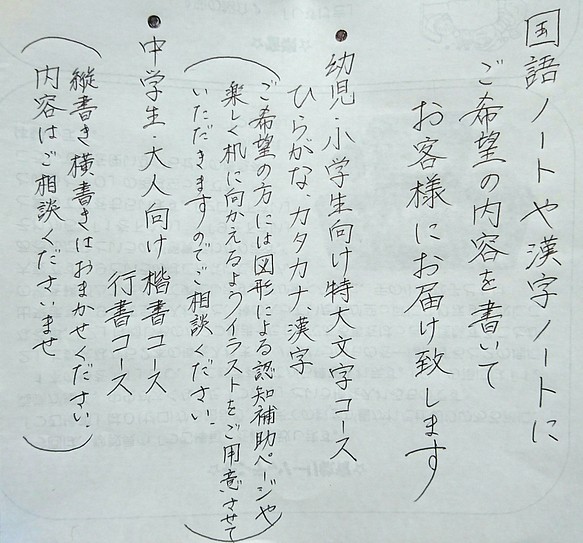 国語ノートや漢字ノートに
ご希望の内容を書いて
お客様にお届け致します
●幼児・小学生向け特大文字コース
ひらがな、カタカナ、漢字
(ご希望の方には図形による認知補助ページや
楽しく机に向かえるようイラストをご用意させて
いただきますのでご相談ください。)
●中学生・大人向け楷書コース
行書コース
(縦書き横書きはおまかせください
内容はご相談くださいませ)